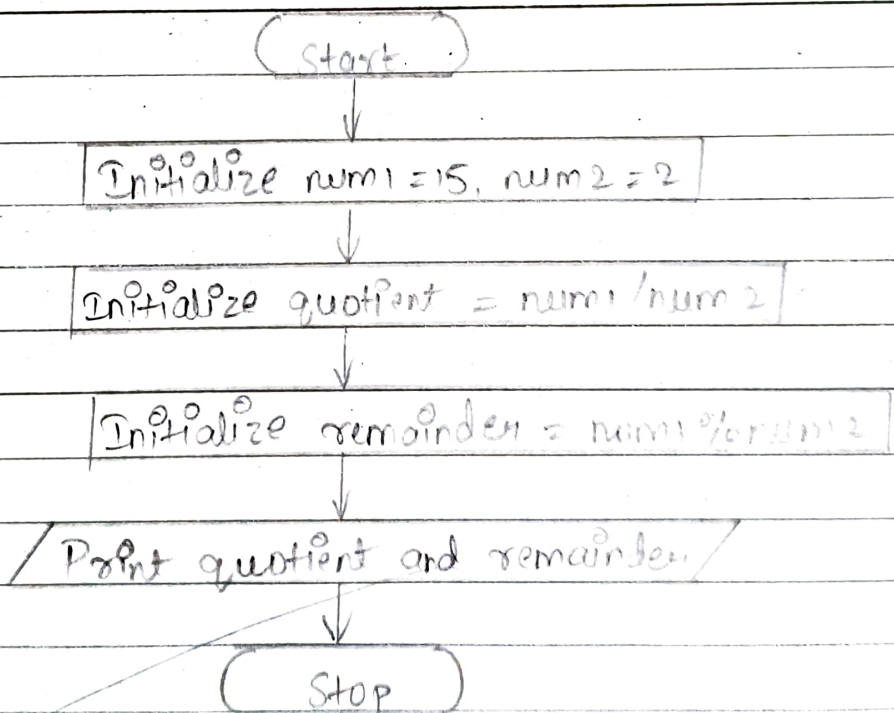 Start
Initialize num1 = 15, num2 = 2
Initialize quotient = num1 / num2
Initialize remainder = num1 % num2
Print quotient and remainder
Stop